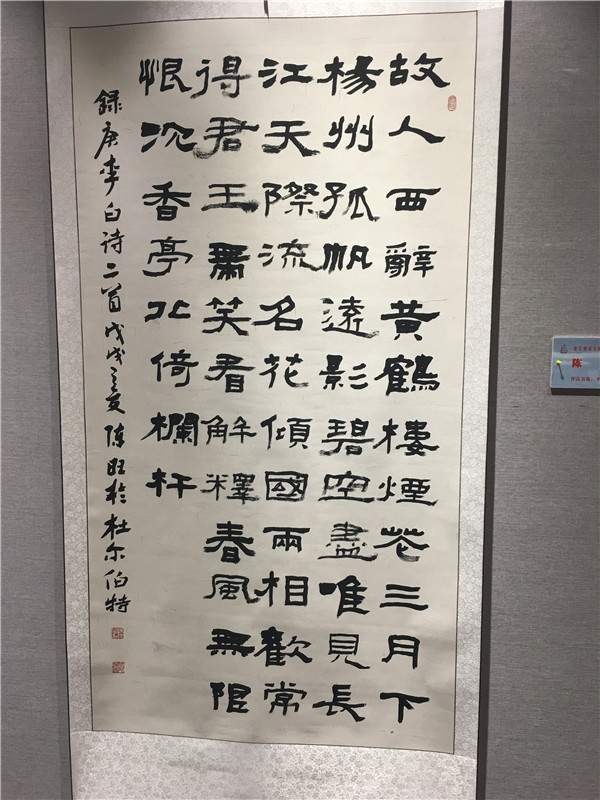 故人西辭黃鶴樓煙花三月下
楊州孤帆遠影碧空盡唯見長
江天際流名花傾國兩相歡常
得君王帶笑看解釋春風無限
恨沉香亭北倚欄杆
録唐李白诗二首戊戌之夏陈旺於杜尔伯特
陈